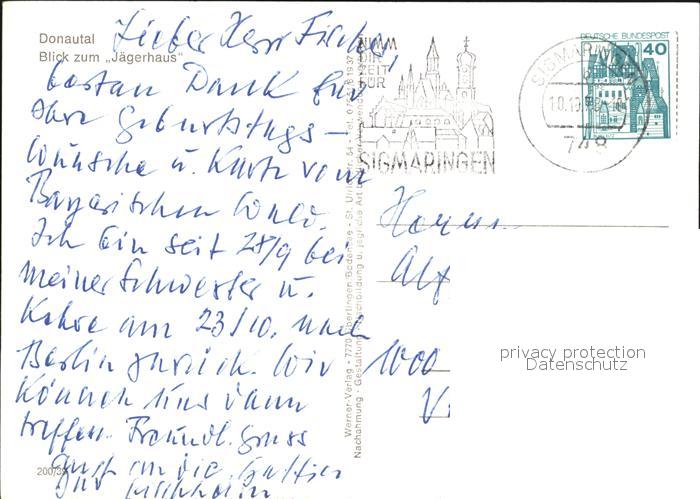 Donautal
Blick zum „Jägerhaus"
Lieber Herr Fischer,
besten Dank für
Ihre Geburtstags-
wünsche u. Karte vom
Bayerischen Wald.
Ich bin seit 28/9 bei
meiner Schwester u.
kehre am 23/10. nach
Berlin zurück. Wir
können uns dann
treffen. Freundl. Gruss
auch an die Gattin
200/35
NIMM
DIR
ZEIT
FÜR
SIGMARINGEN
SIGMARINGEN
748
DEUTSCHE BUNDESPOST
40
Werner-Verlag · 7770 Überlingen/Bodensee
Nachahmung · Gestaltung
Herrn
Alf
1000
privacy protection
Datenschutz